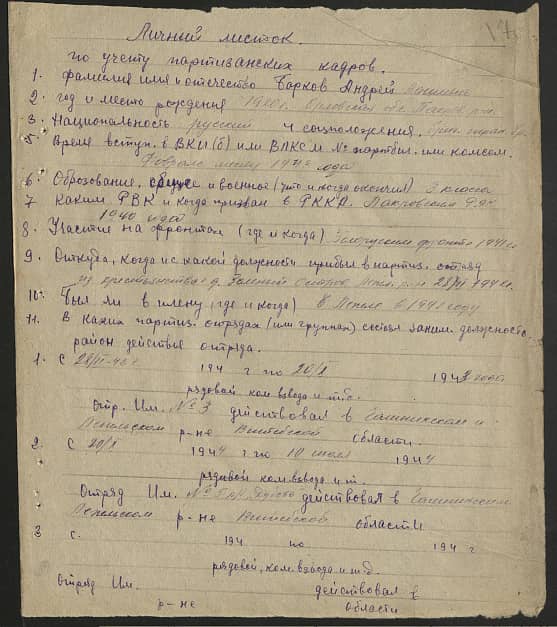 17
Личный листок.
по учету партизанских кадров.
1. фамилия имя и отчество Барков Андрей
2. год и место рождения 1920 г. Орловская обл.
3. Национальность русский 4 соцположения,
5. Время вступ. в ВКП(б) или ВЛКСМ № партбил. или комсом.
года
6. Образование, общее и военное (что и когда окончил) 3 класса
7 Каким РВК и когда призван в РККА.
1940 года
8. Участие на фронтах (где и когда) фронте 1941 г.
9. Откуда, когда и с какой должности прибыл в партиз. отряд
из д. Остров р-н 28/VI
10. Был ли в плену (где и когда) в 1941 году
11. В каких партиз. отрядах (или группах) состоял заним. должность,
район действия отряда.
1. С 194 г по 20/X 194 года
рядовой ком. взвода и т.д.
отр. Им. № 3 действовал в Сенненском и
Лепельском р-не Витебской области.
2. С 20/X 194 г по 10 июля 1944
рядовой ком взвода и т.
Отряд Им. № действовал в Сенненском
Лепельском р-не Витебской области
3 с. 194 по 194 г
рядовой, ком. взвода и т.д.
отряд Им. действовал в
р-не области